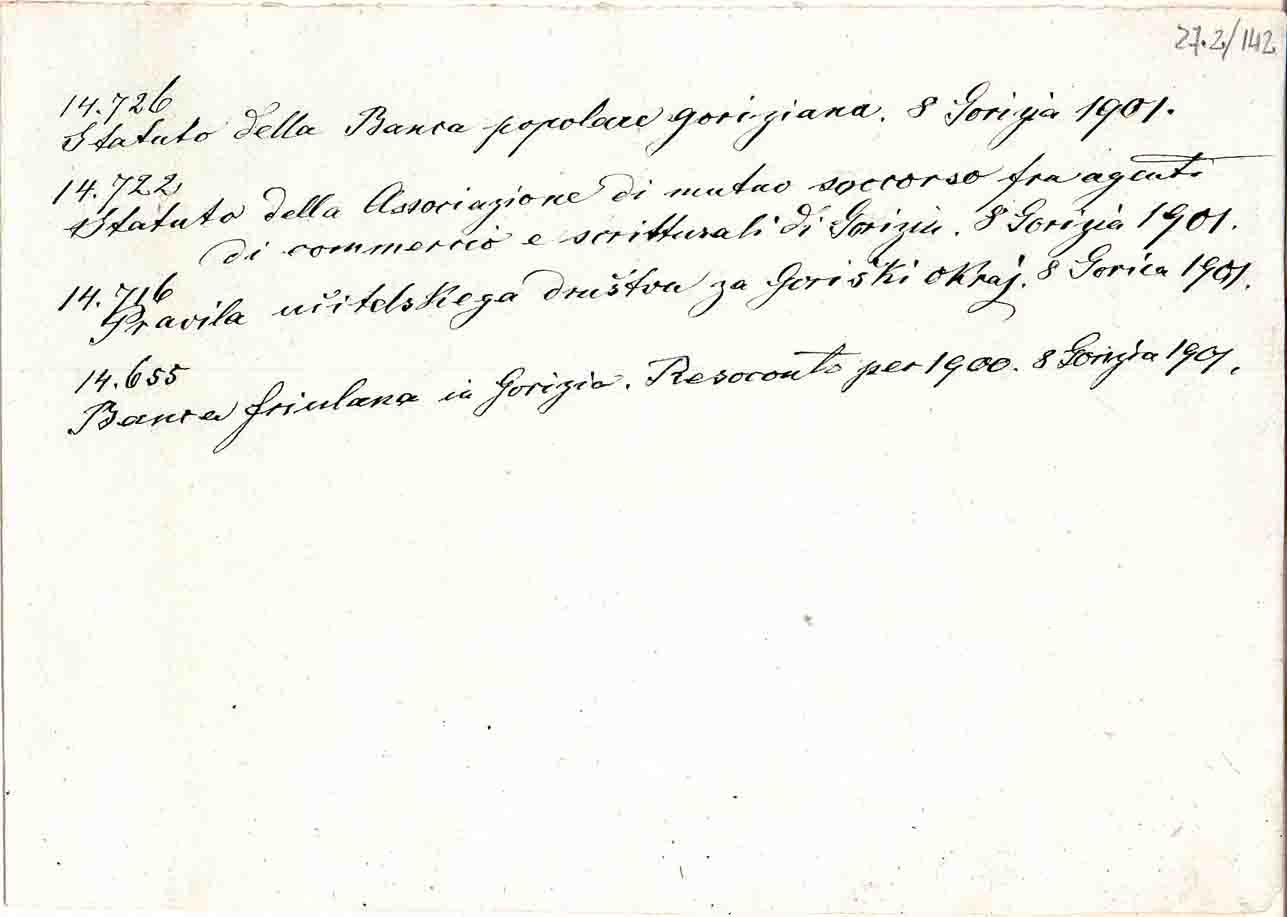 27.2/142
14.726
Statuto della Banca popolare goriziana. 8 Gorizia 1901.
14.722
Statuto della Associazione di mutuo soccorso fra agenti
di commercio e scritturali di Gorizia. 8 Gorizia 1901.
14.716
Pravila učitelskega društva za Goriški okraj. 8 Gorica 1901.
14.655
Banca friulana in Gorizia. Resoconto per 1900. 8 Gorizia 1901.